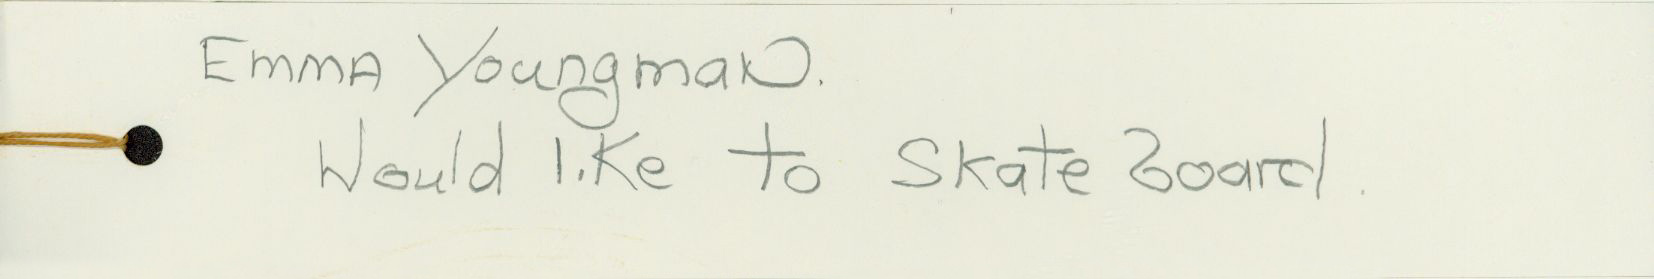 Emma Youngman.
Would like to Skate Board.